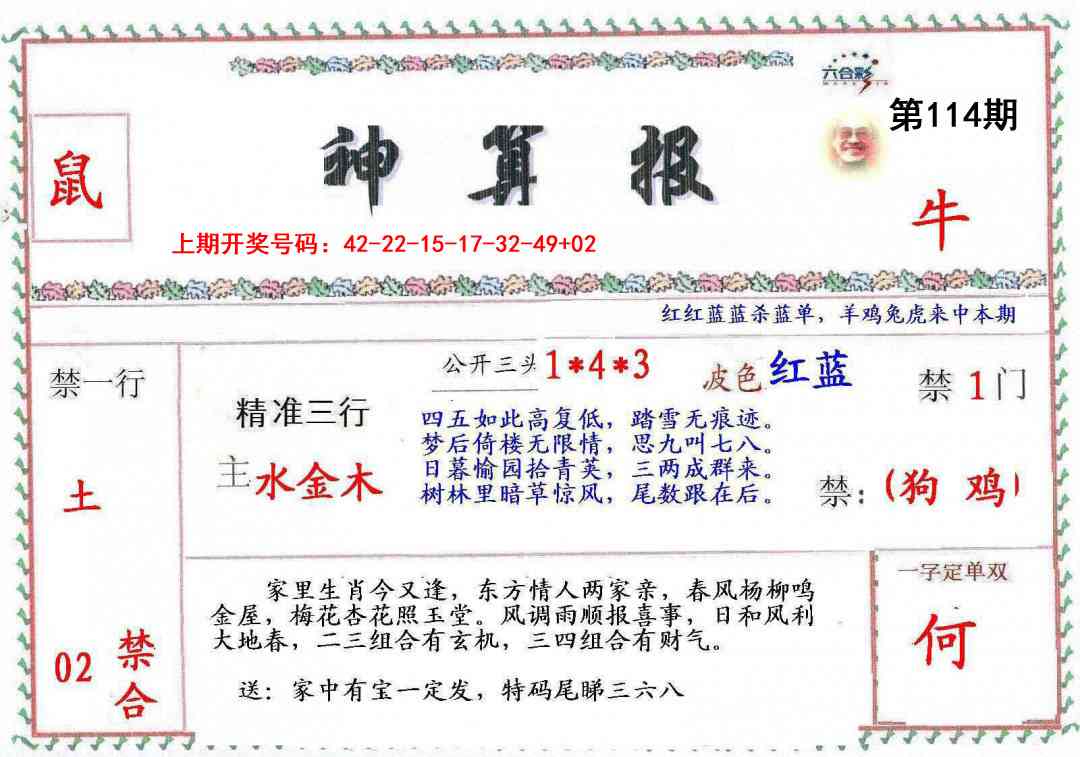 六合彩
第114期
鼠
神算报
牛
上期开奖号码：42-22-15-17-32-49+02
红红蓝蓝杀蓝单，羊鸡兔虎来中本期
禁一行
土
02
禁合
精准三行
主水金木
公开三头1*4*3
波色红蓝
四五如此高复低，踏雪无痕迹。
梦后倚楼无限情，思九叫七八。
日暮愉园拾青英，三两成群来。
树林里暗草惊风，尾数跟在后。
禁1门
禁：(狗 鸡)
家里生肖今又逢，东方情人两家亲，春风杨柳鸣
金屋，梅花杏花照玉堂。风调雨顺报喜事，日和风利
大地春，二三组合有玄机，三四组合有财气。
送：家中有宝一定发，特码尾睇三六八
一字定单双
何